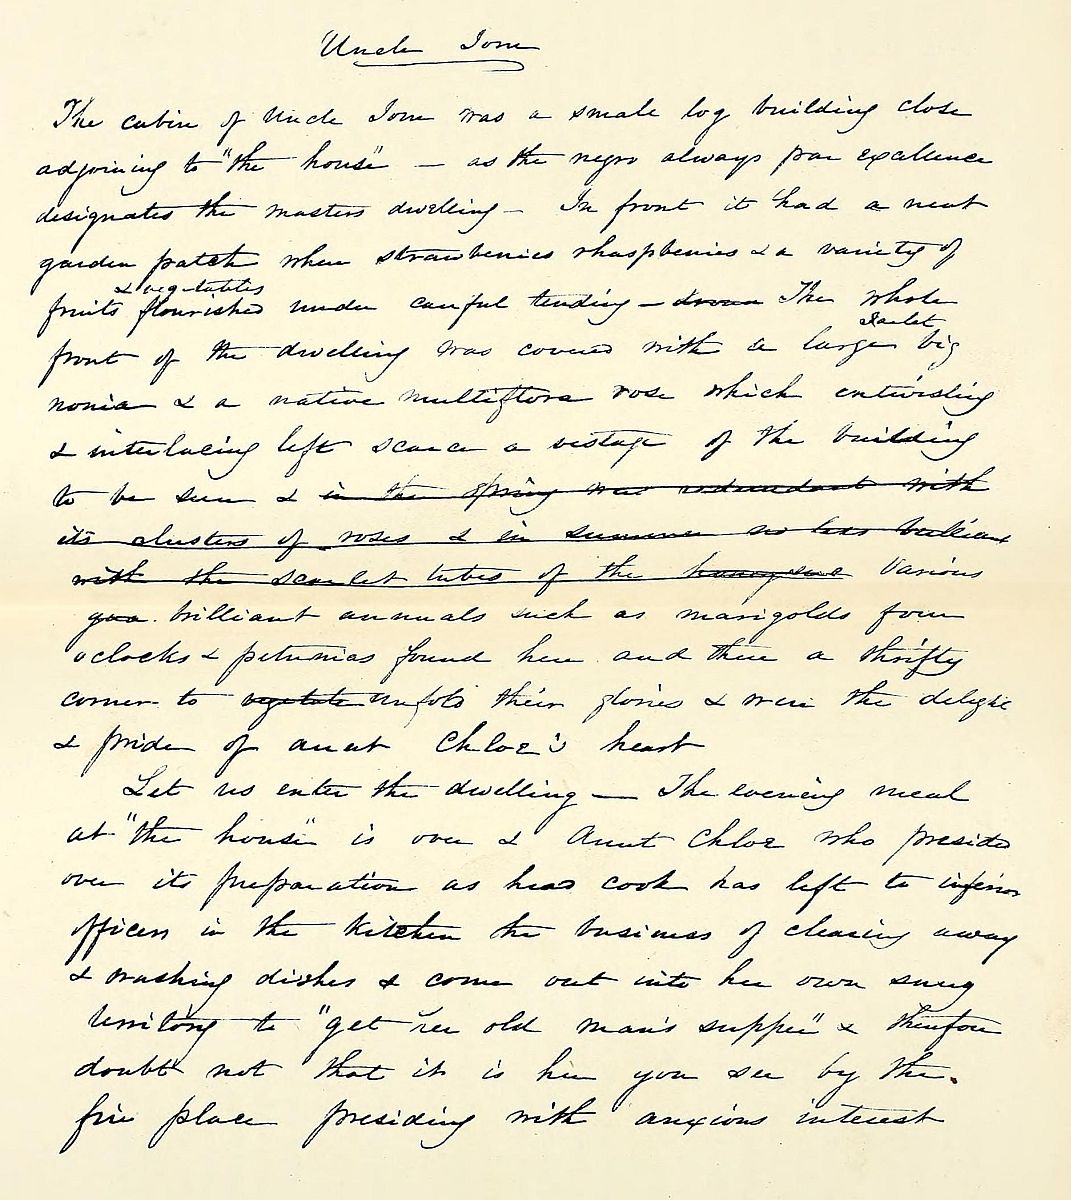 Uncle Tom
The cabin of Uncle Tom was a small log building close
adjoining to "the house" — as the negro always par excellence
designates the masters dwelling — In front it had a neat
garden patch where strawberries rhaspberries & a variety of
& vegetables
fruits flourished under careful tending — The whole
scarlet
front of the dwelling was covered with a large big
nonia & a native multiflora rose which entwisting
& interlacing left scarce a vestage of the building
to be seen & in the spring was redundant with
its clusters of roses & in summer no less brillian
with the scarlet tubes of the honeysuc Various
gua brilliant annuals such as marigolds four
oclocks & petunias found here and there a thrifty
corner to vegetate unfold their glories & were the delight
& pride of aunt Chloe's heart
Let us enter the dwelling — The evening meal
at "the house" is over & Aunt Chloe who presided
over its preparation as head cook has left to inferior
officers in the kitchen the business of clearing away
& washing dishes & come out into her own snug
territory to "get her old man's supper" & therefore
doubt not that it is her you see by the
fire place presiding with anxious interest